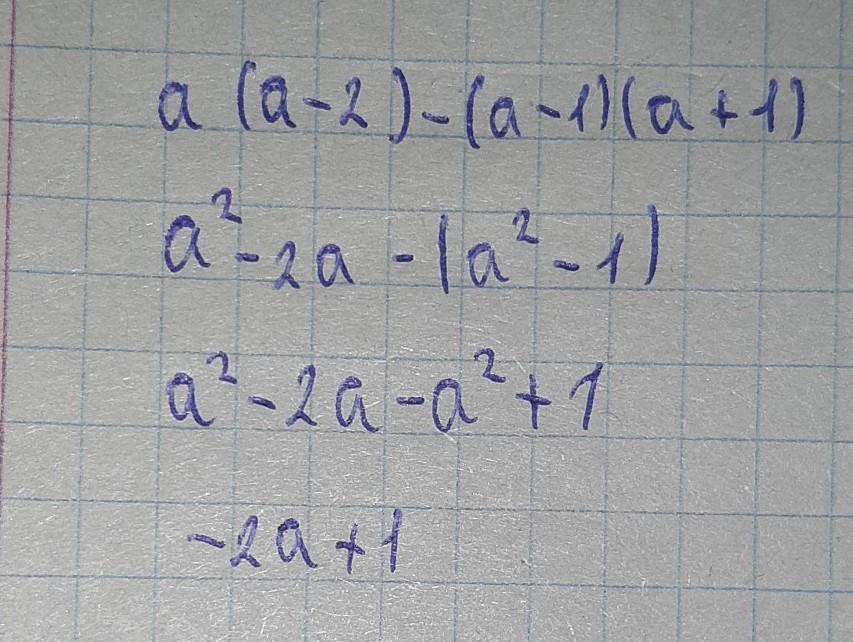 a (a-2)-(a-1)(a+1)
a²-2a-(a²-1)
a²-2a-a²+1
-2a+1